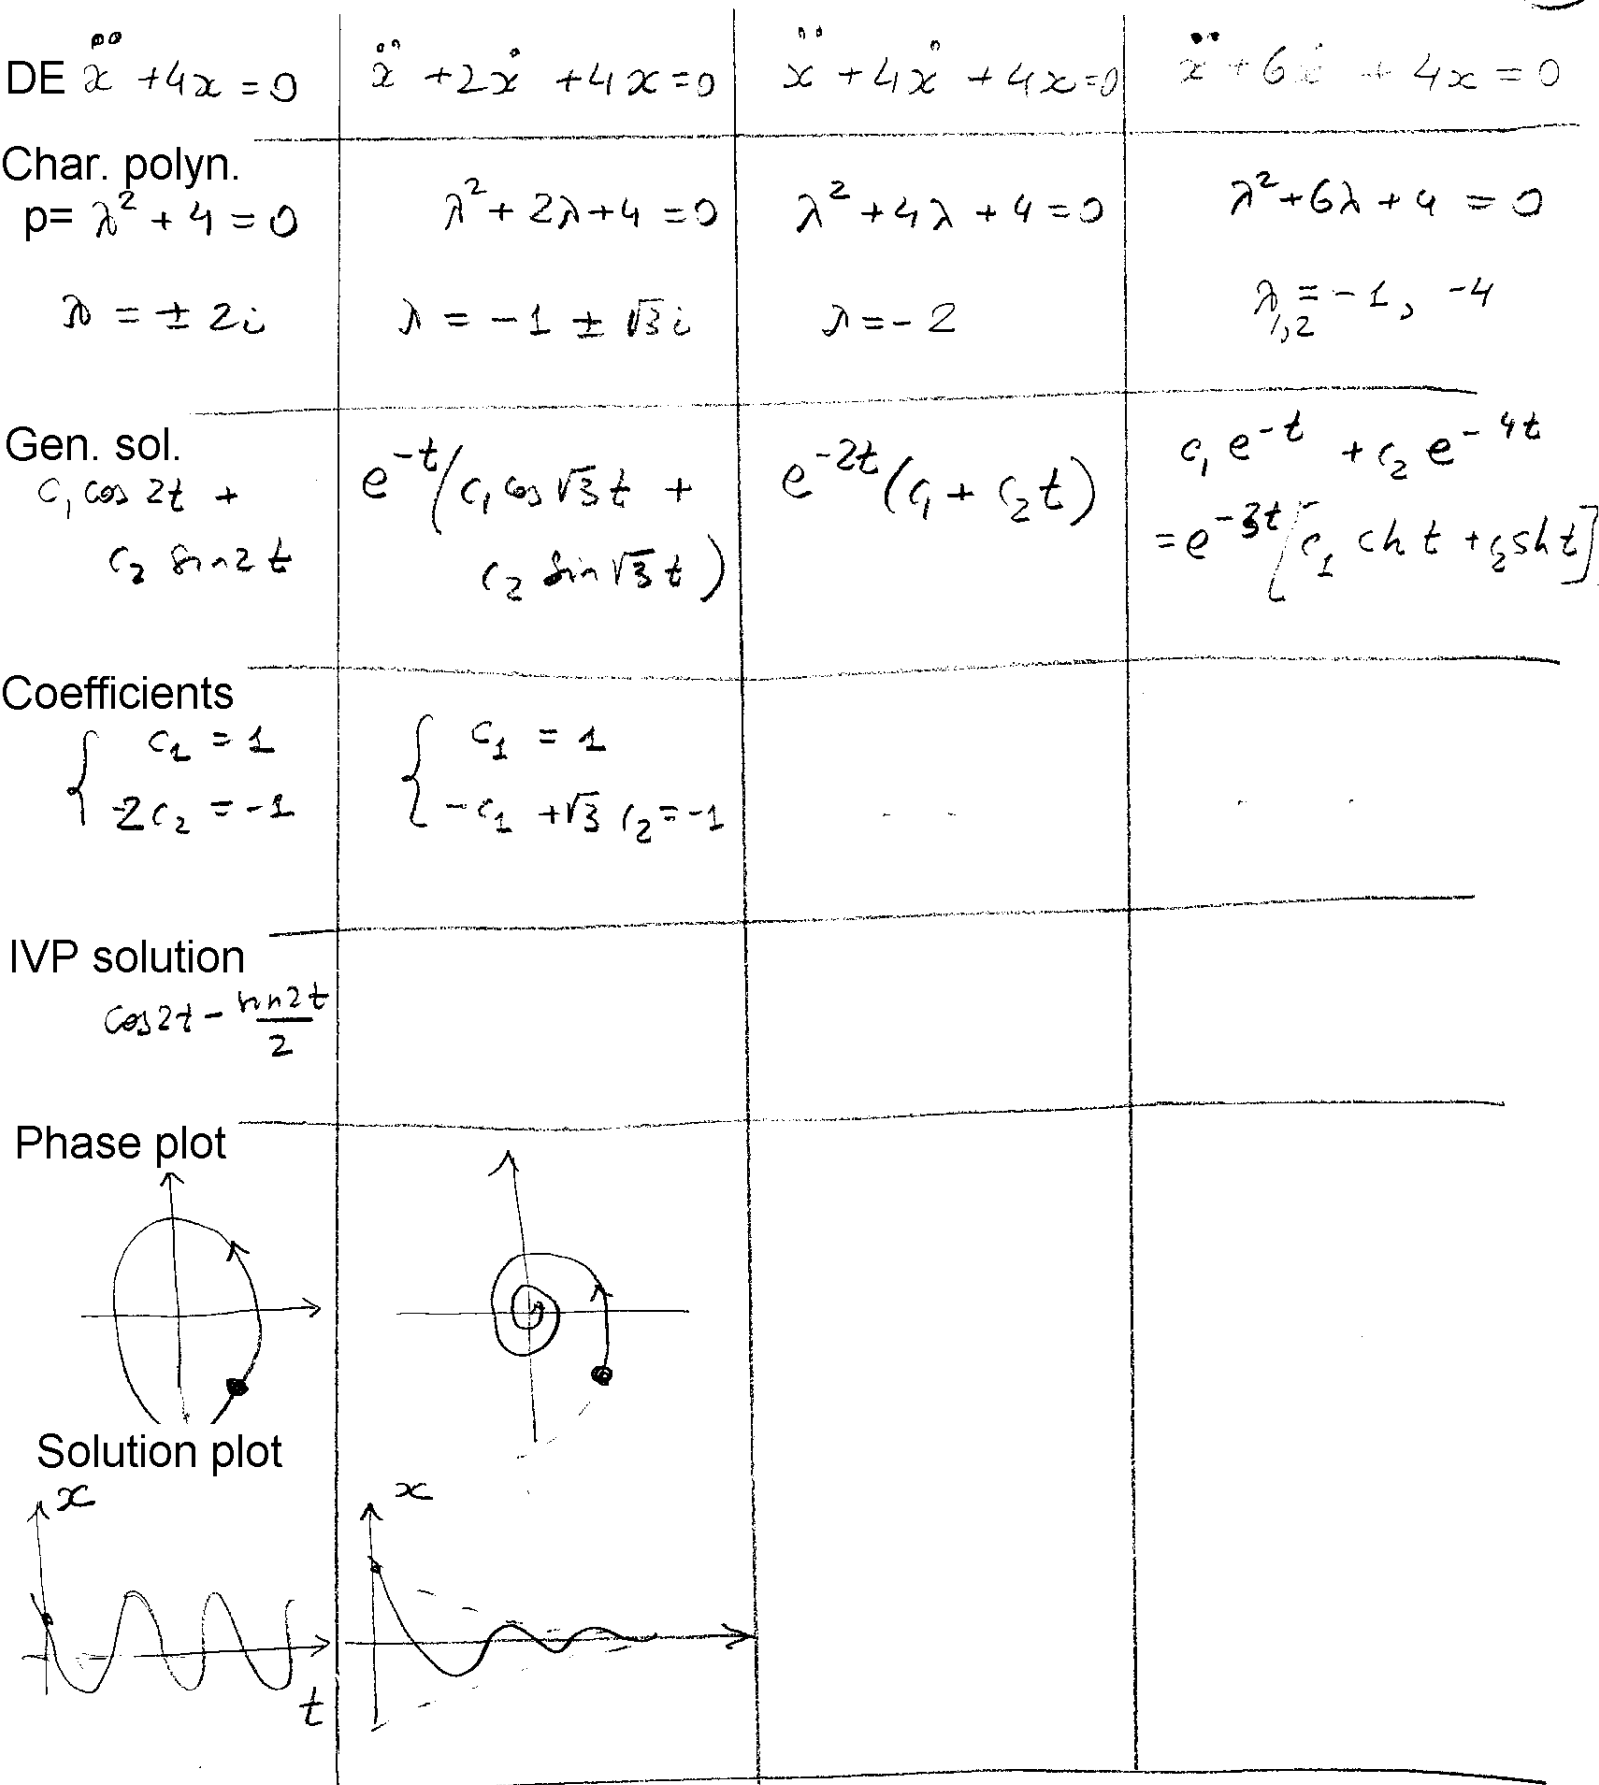 DE ẍ + 4x = 0
ẍ + 2ẋ + 4x = 0
ẍ + 4ẋ + 4x = 0
ẍ + 6ẋ + 4x = 0
Char. polyn.
p= λ² + 4 = 0
λ² + 2λ + 4 = 0
λ² + 4λ + 4 = 0
λ² + 6λ + 4 = 0
λ = ± 2i
λ = -1 ± √3 i
λ = -2
λ₁,₂ = -1, -4
Gen. sol.
c₁ cos 2t +
c₂ sin 2t
e^{-t} (c₁ cos √3 t +
c₂ sin √3 t)
e^{-2t} (c₁ + c₂ t)
c₁ e^{-t} + c₂ e^{-4t}
= e^{-3t} [c₁ ch t + c₂ sh t]
Coefficients
c₁ = 1
-2c₂ = -1
c₁ = 1
-c₁ + √3 c₂ = -1
IVP solution
cos 2t - sin 2t / 2
Phase plot
Solution plot
x
t
x